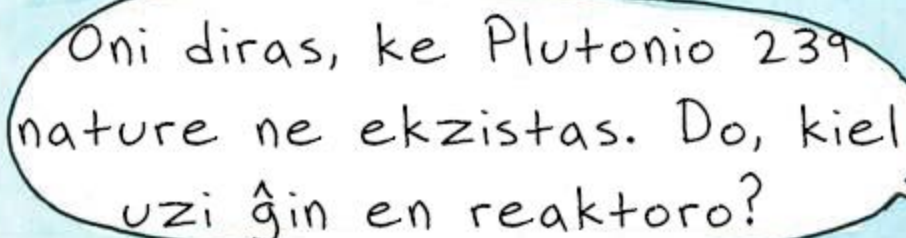 Oni diras, ke Plutonio 239
nature ne ekzistas. Do, kiel
uzi ĝin en reaktoro?